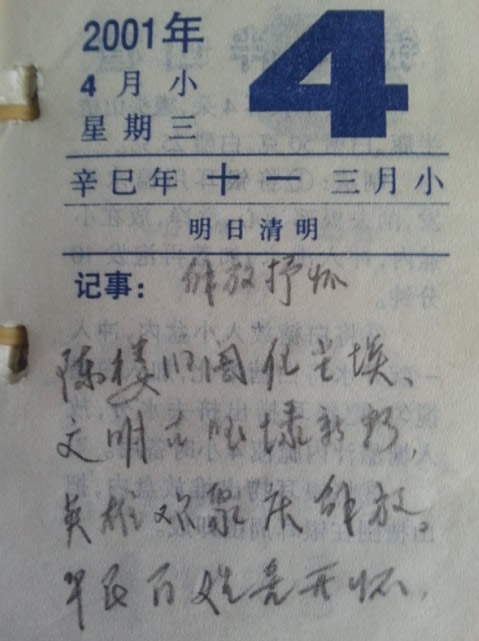 2001年
4月小
星期三
4
辛巳年 十一 三月小
明日清明
记事： 解放抒怀
陈楼旧阁化尘埃、
文明古新
英雄欢聚庆解放。
民百姓开怀.